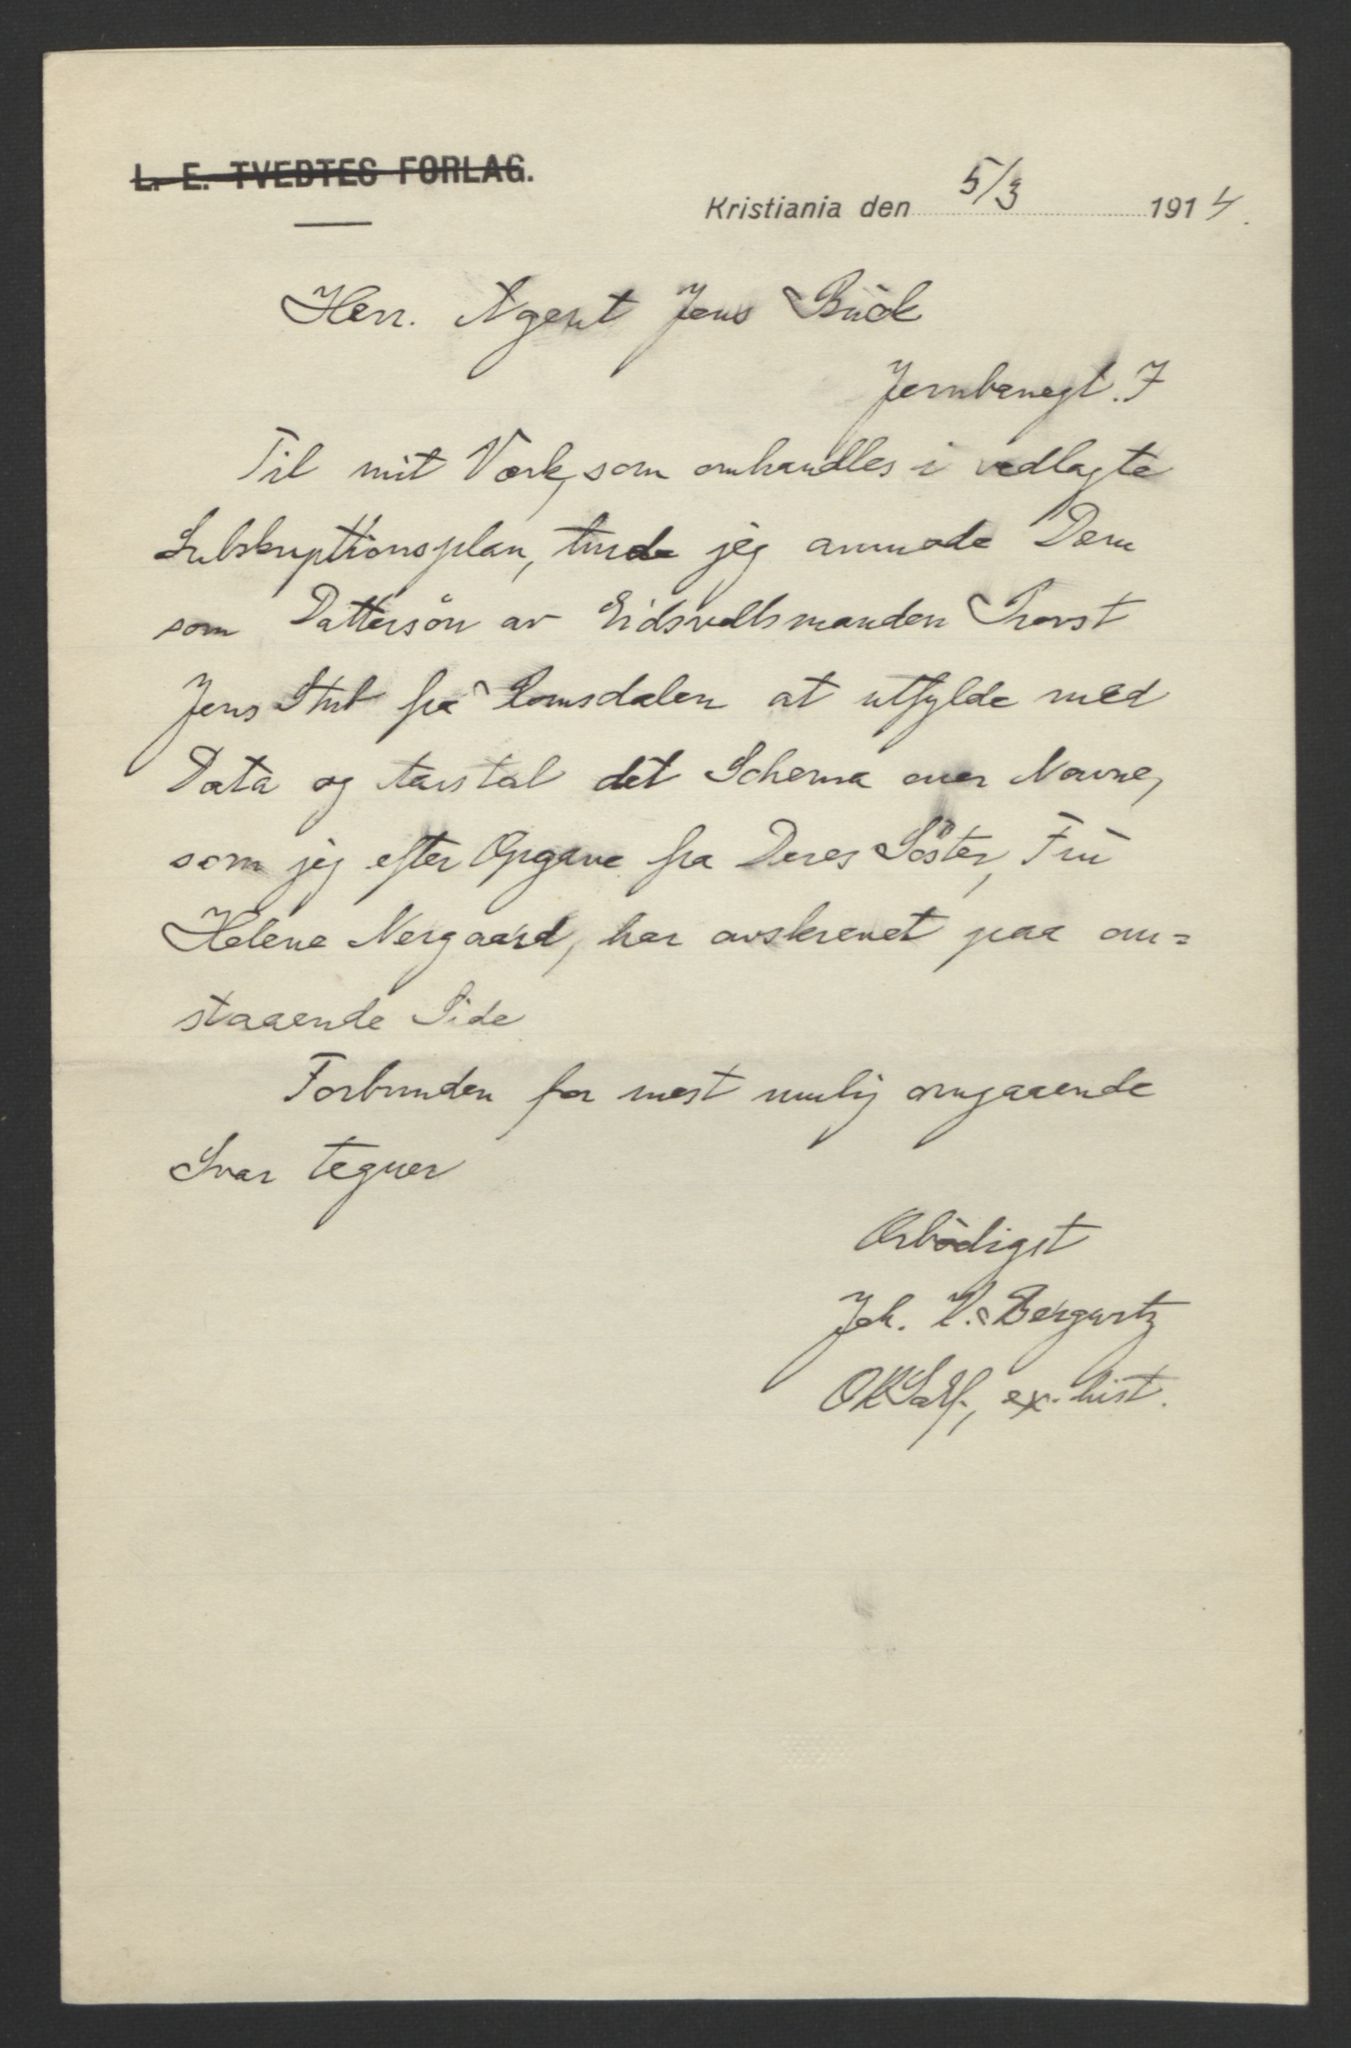 L. E. TVEDTES FORLAG.
Kristiania den 5/3 1914.
Herr. Agent Jens Bück
Jernbanegt. 7
Til mit Værk, som omhandles i vedlagte
Subskriptionsplan, turde jeg anmode Dem
som Dattersön av Eidsvollsmanden Provst
Jens Stub fra Romsdalen at utfylde med
Data og Aarstal det Schema over Navne,
som jeg efter Opgave fra Deres Söster, Fru
Helene Nergaard, har avskrevet paa om=
staaende Side
Forbunden for mest mulig omgaaende
Svar tegner
Ærbödigst
Joh. V. Bergwitz
ex. hist.